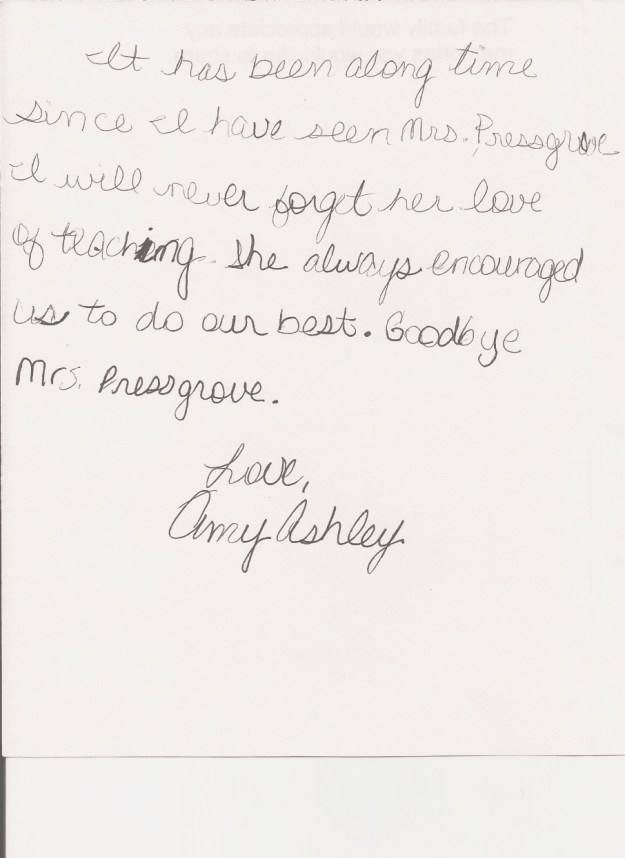 It has been along time
since I have seen Mrs. Pressgrove
I will never forget her love
of teaching. She always encouraged
us to do our best. Goodbye
Mrs. Pressgrove.
Love,
Amy Ashley